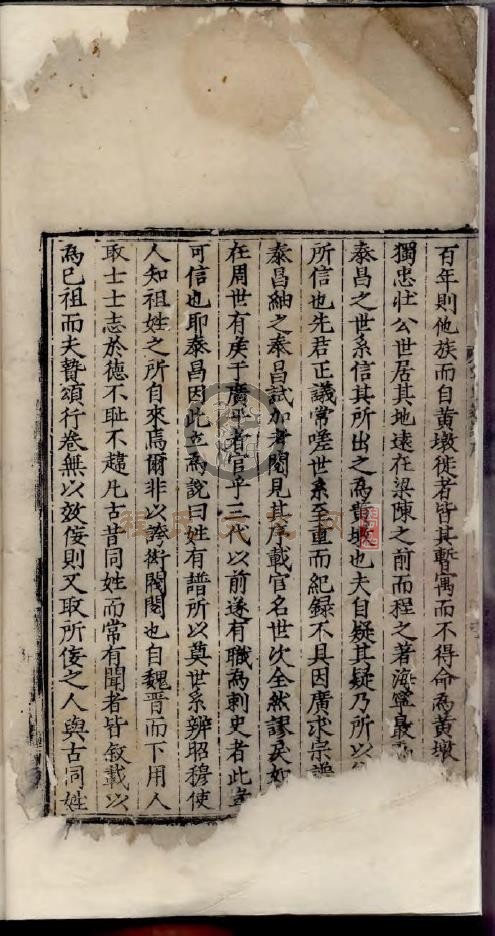 百年則他族而自黃墩徙者皆其暫寓而不得命為黃墩
獨忠壯公世居其地遠在梁陳之前而程之著海寧最
泰昌之世系信其所出之為黃墩也夫自疑其疑乃所以
所信也先君正議常嗟世系至重而紀録不具因廣求宗譜
泰昌紬之泰昌試加考閱見其序載官名世次全然謬戾如
在周世有矦于廣平者官乎三代以前遂有職為刺史者此豈
可信也耶泰昌因此立為說曰姓有譜所以奠世系辨昭穆使
人知祖姓之所自來焉爾非以誇衒閥閱也自魏晋而下用人
取士士志於德不耻不趨凡古昔同姓而常有聞者皆叙載以
為已祖而夫贄頌行卷無以效侫則又取所侫之人與古同姓